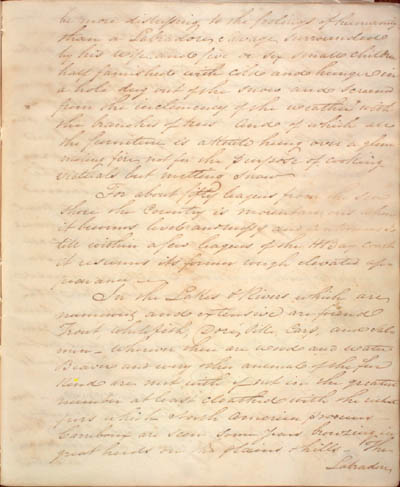 be more distressing to the feelings of humanity
than a Labradore savage surrounded
by his wife and five or six small children
half famished with cold and hunger in
a hole dug out of the snow and screened
from the inclemency of the weather with
the branches of trees and of which are
the furniture is a kettle hung over a
fire not for the purpose of cooking
victuals but melting snow
For about fifty leagues from the
Shore the Country is mountainous when
it becomes level and
till within a few leagues of the H Bay coast
it resumes its former rough elevated ap
pearance
In the Lakes & Rivers which are
numerous and extensive are found
Trout Whitefish, Dorè, Pike, Carp, and
mon wherever there are wood and water
Beaver and every other animal of the fur
kind are met with if not in the greatest
number at least cloathed with the richest
furs which North America produces
are seen some years browzing in
great herds on the plains & hills. The
Labrador,